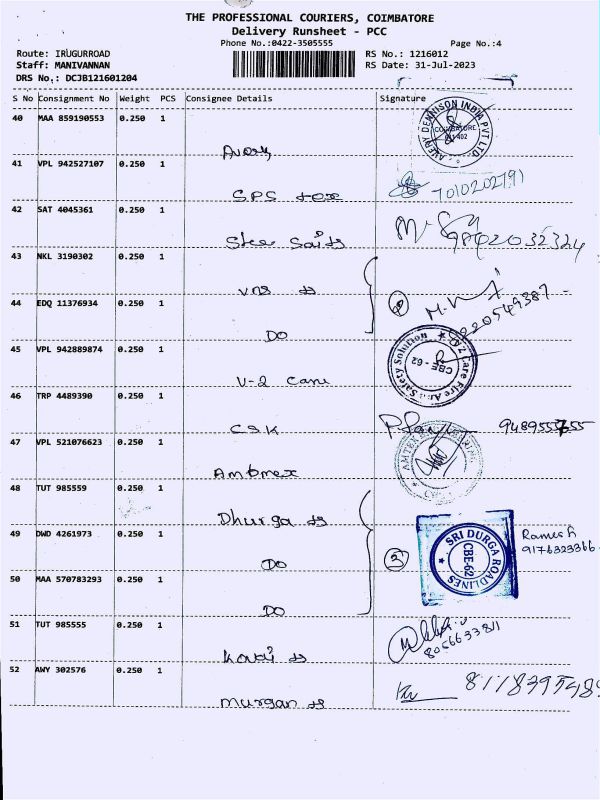 THE PROFESSIONAL COURIERS, COIMBATORE
Delivery Runsheet - PCC
Phone No.:0422-3505555
Page No.:4
Route: IRUGURROAD
RS No.: 1216012
Staff: MANIVANNAN
RS Date: 31-Jul-2023
DRS No.: DCJB121601204
S No Consignment No Weight PCS Consignee Details Signature
40 MAA 859190553 0.250 1
AVERY DENNISON INDIA PVT LTD
COIMBATORE
641 402
Avery
41 VPL 942527107 0.250 1
7010202791
SPS tex
42 SAT 4045361 0.250 1
9842032324
Stee Sai ts
43 NKL 3190302 0.250 1
VNS ts
44 EDQ 11376934 0.250 1
9220549387
DO
45 VPL 942889874 0.250 1
V2 Care Fire And Safety Solution
CBE - 62
V-2 Care
46 TRP 4489390 0.250 1
CSK
9489555755
47 VPL 521076623 0.250 1
Ambmex
48 TUT 985559 0.250 1
Dhurga ts
49 DWD 4261973 0.250 1
3
SRI DURGA ROADLINES
CBE-62
Ramesh
9176323366
DO
50 MAA 570783293 0.250 1
DO
51 TUT 985555 0.250 1
8056633811
52 AWY 302576 0.250 1
Murgan ts